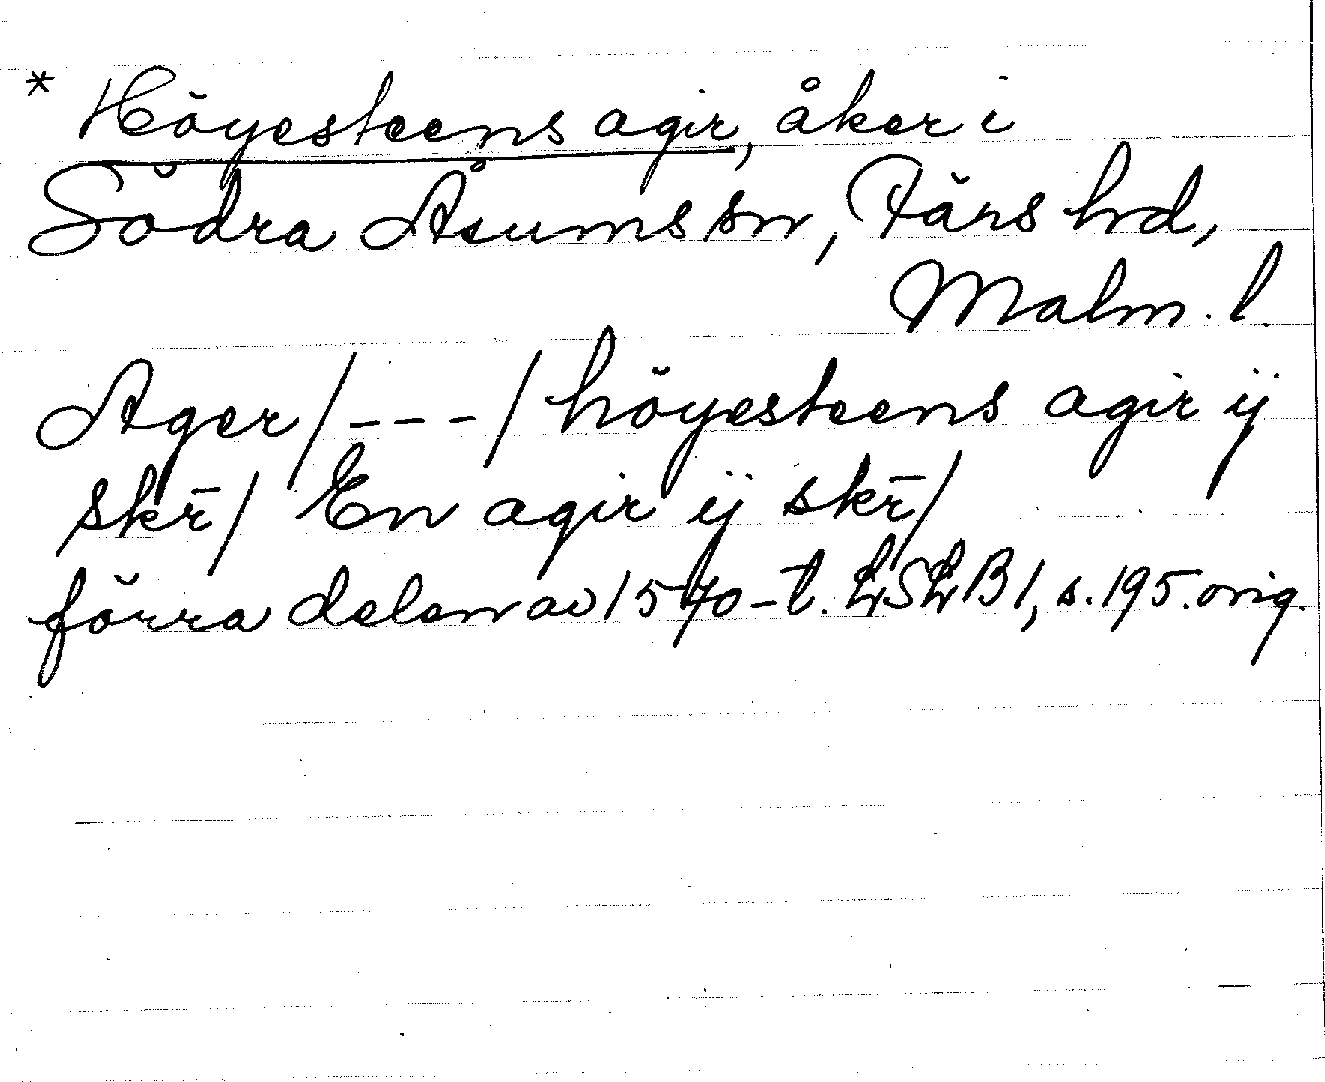 * Höyesteens agir, åker i
Södra Åsums sn, Färs hd,
Malm. l.
Ager/---/höyesteens agir ij
skr̄/ En agir ij skr̄/
förra delen av 1570-t. LSLB1, s. 195. orig.